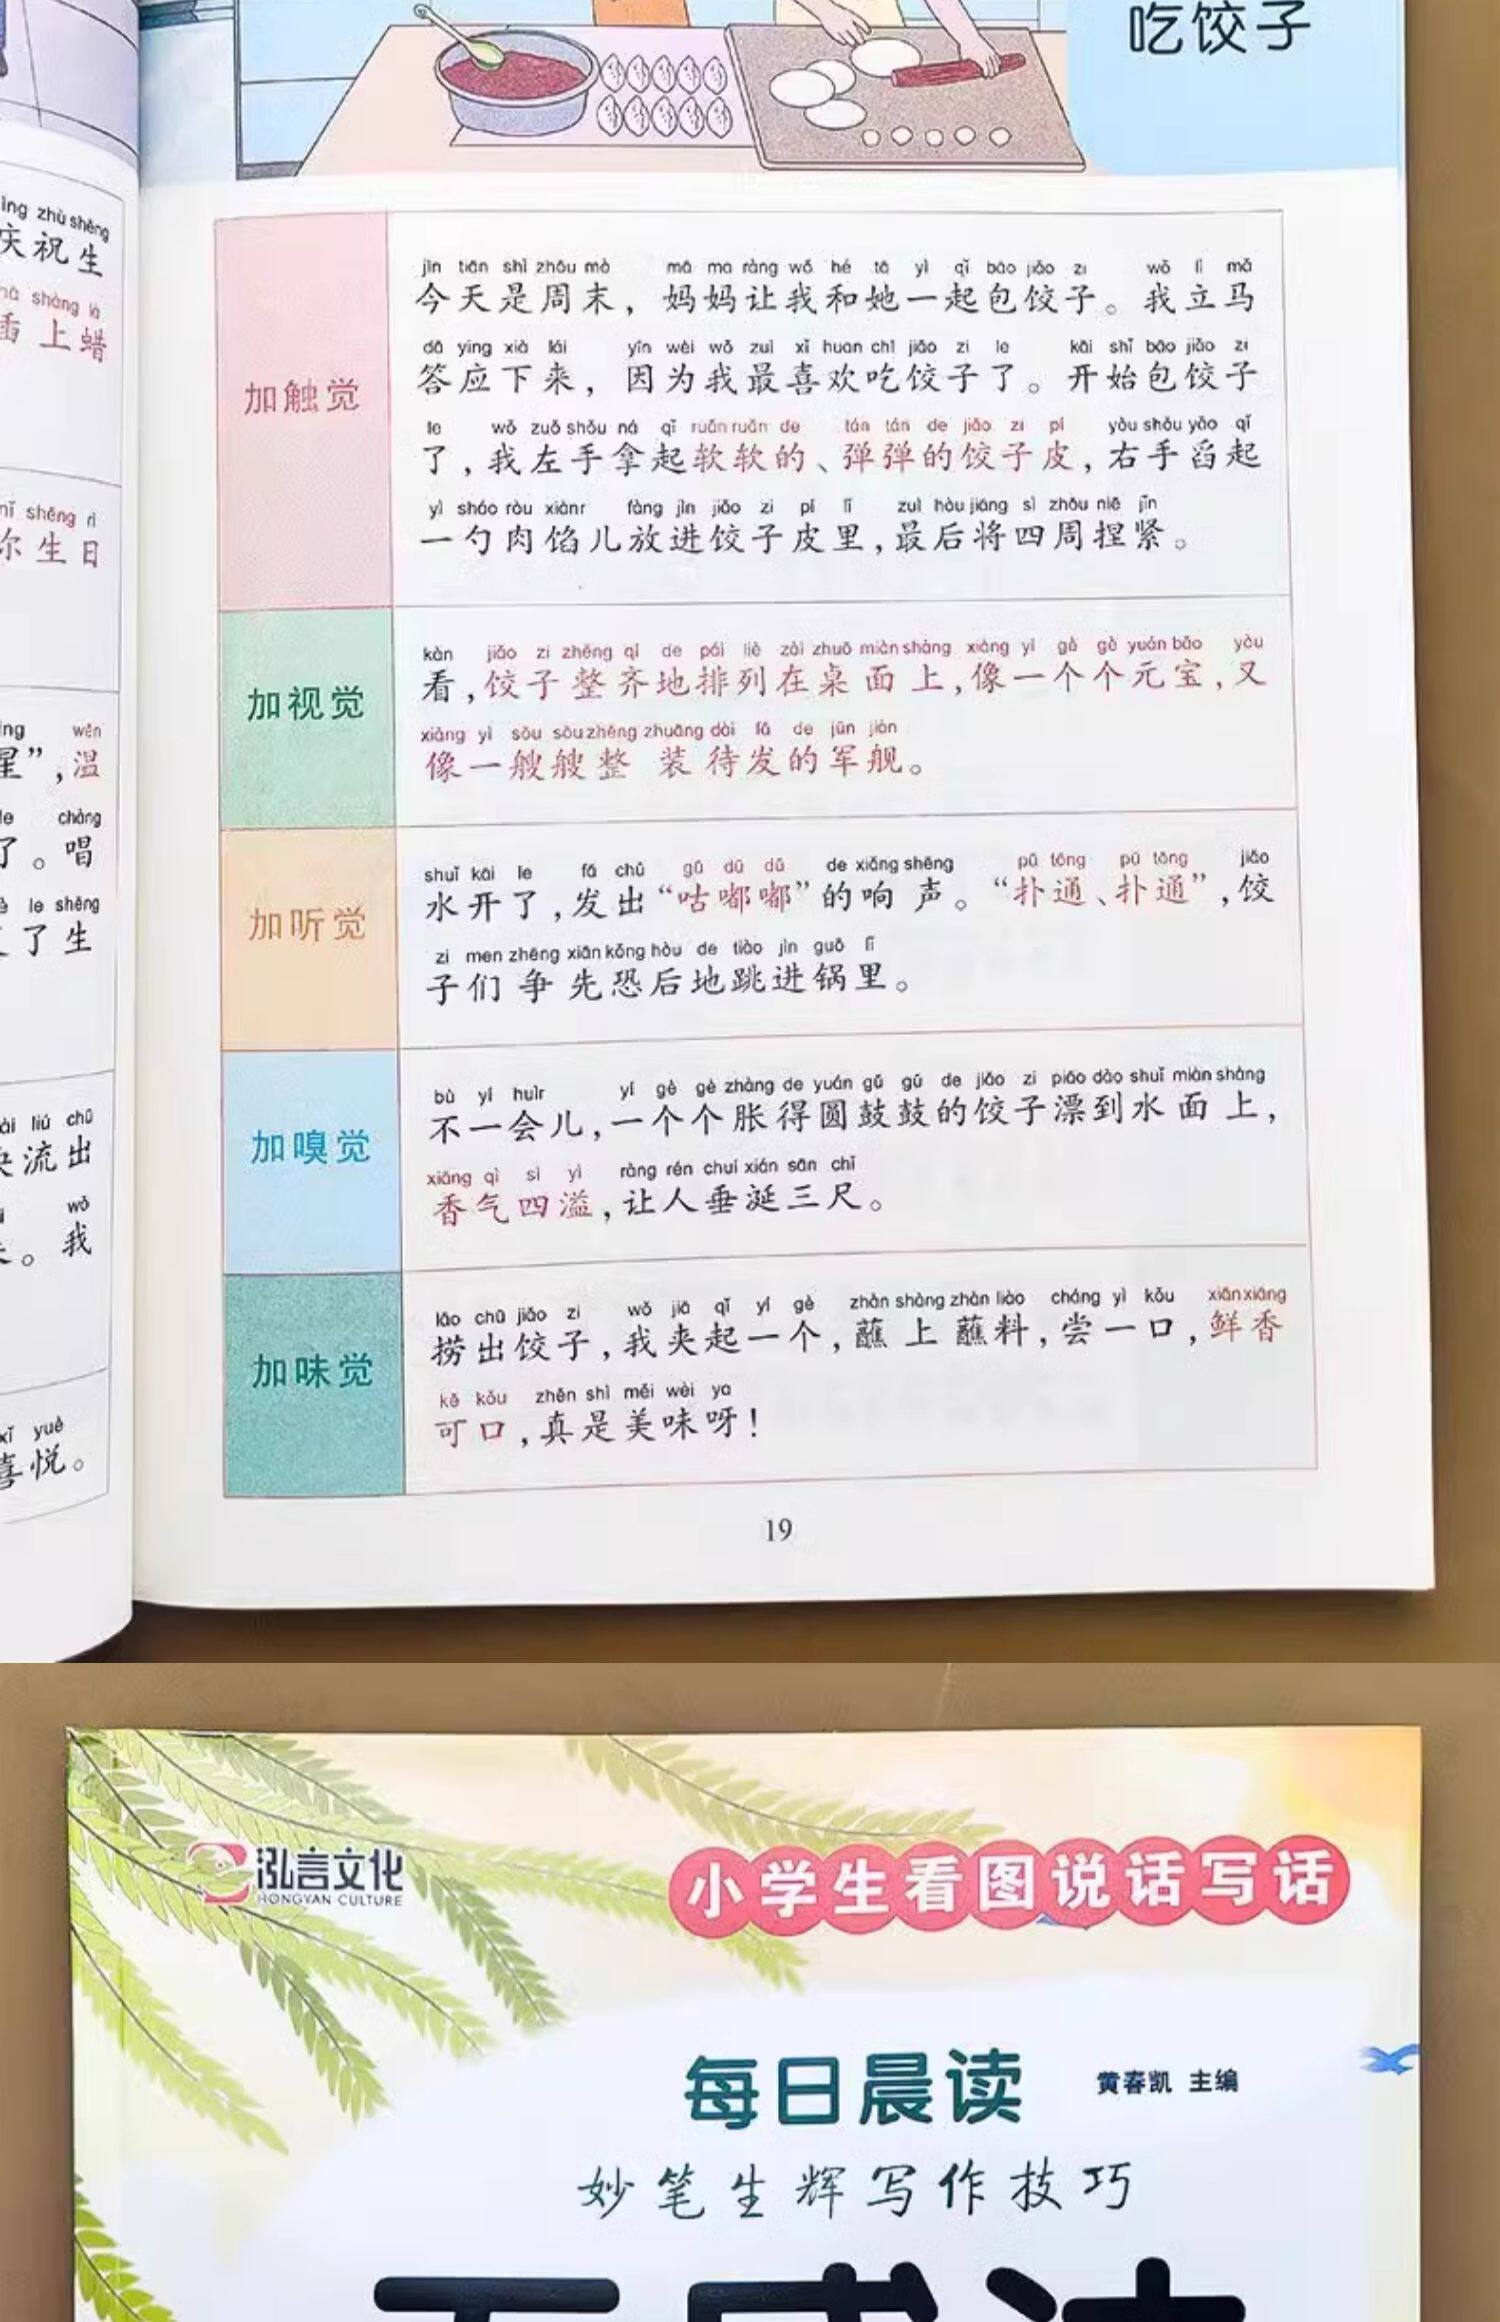 吃饺子
ìng zhù shēng
庆祝生
shàng là
上蜡
shēng rì
你生日
wēn
星”，温
le chàng
了。唱
le shēng
了生
liú chū
流出
wǒ
。我
xǐ yuè
喜悦。
jīn tiān shì zhōu mò mā ma ràng wǒ hé tā yì qǐ bāo jiǎo zi wǒ lì mǎ
今天是周末，妈妈让我和她一起包饺子。我立马
dā ying xià lái yīn wèi wǒ zuì xǐ huan chī jiǎo zi le kāi shǐ bāo jiǎo zi
答应下来，因为我最喜欢吃饺子了。开始包饺子
加触觉
le wǒ zuǒ shǒu ná qǐ ruǎn ruǎn de tán tán de jiǎo zi pí yòu shǒu yǎo qǐ
了，我左手拿起软软的、弹弹的饺子皮，右手舀起
yì sháo ròu xiànr fàng jìn jiǎo zi pí lǐ zuì hòu jiāng sì zhōu niē jǐn
一勺肉馅儿放进饺子皮里，最后将四周捏紧。
加视觉
kàn jiǎo zi zhěng qí de pái liè zài zhuō miàn shàng xiàng yí gè gè yuán bǎo yòu
看，饺子整齐地排列在桌面上，像一个个元宝，又
xiàng yì sōu sōu zhěng zhuāng dài fā de jūn jiàn
像一艘艘整装待发的军舰。
加听觉
shuǐ kāi le fā chū gū dū dū de xiǎng shēng pū tōng pū tōng jiǎo
水开了，发出“咕嘟嘟”的响声。“扑通、扑通”，饺
zi men zhēng xiān kǒng hòu de tiào jìn guō lǐ
子们争先恐后地跳进锅里。
加嗅觉
bù yí huìr yí gè gè zhàng de yuán gǔ gǔ de jiǎo zi piāo dào shuǐ miàn shàng
不一会儿，一个个胀得圆鼓鼓的饺子漂到水面上，
xiāng qì sì yì ràng rén chuí xián sān chǐ
香气四溢，让人垂涎三尺。
加味觉
lāo chū jiǎo zi wǒ jiā qǐ yí gè zhàn shàng zhàn liào cháng yì kǒu xiān xiāng
捞出饺子，我夹起一个，蘸上蘸料，尝一口，鲜香
kě kǒu zhēn shì měi wèi ya
可口，真是美味呀！
19
泓言文化
HONGYAN CULTURE
小学生看图说话写话
每日晨读
黄春凯 主编
妙笔生辉写作技巧